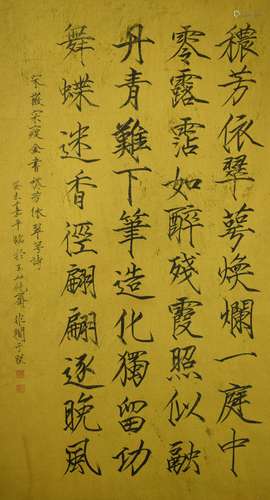 穠芳依翠萼煥爛一庭中
零露霑如醉殘霞照似融
丹青難下筆造化獨留功
舞蝶迷香徑翩翩逐晚風
宋徽宗瘦金書穠芳依翠萼詩
癸未嘉平臨於玉山